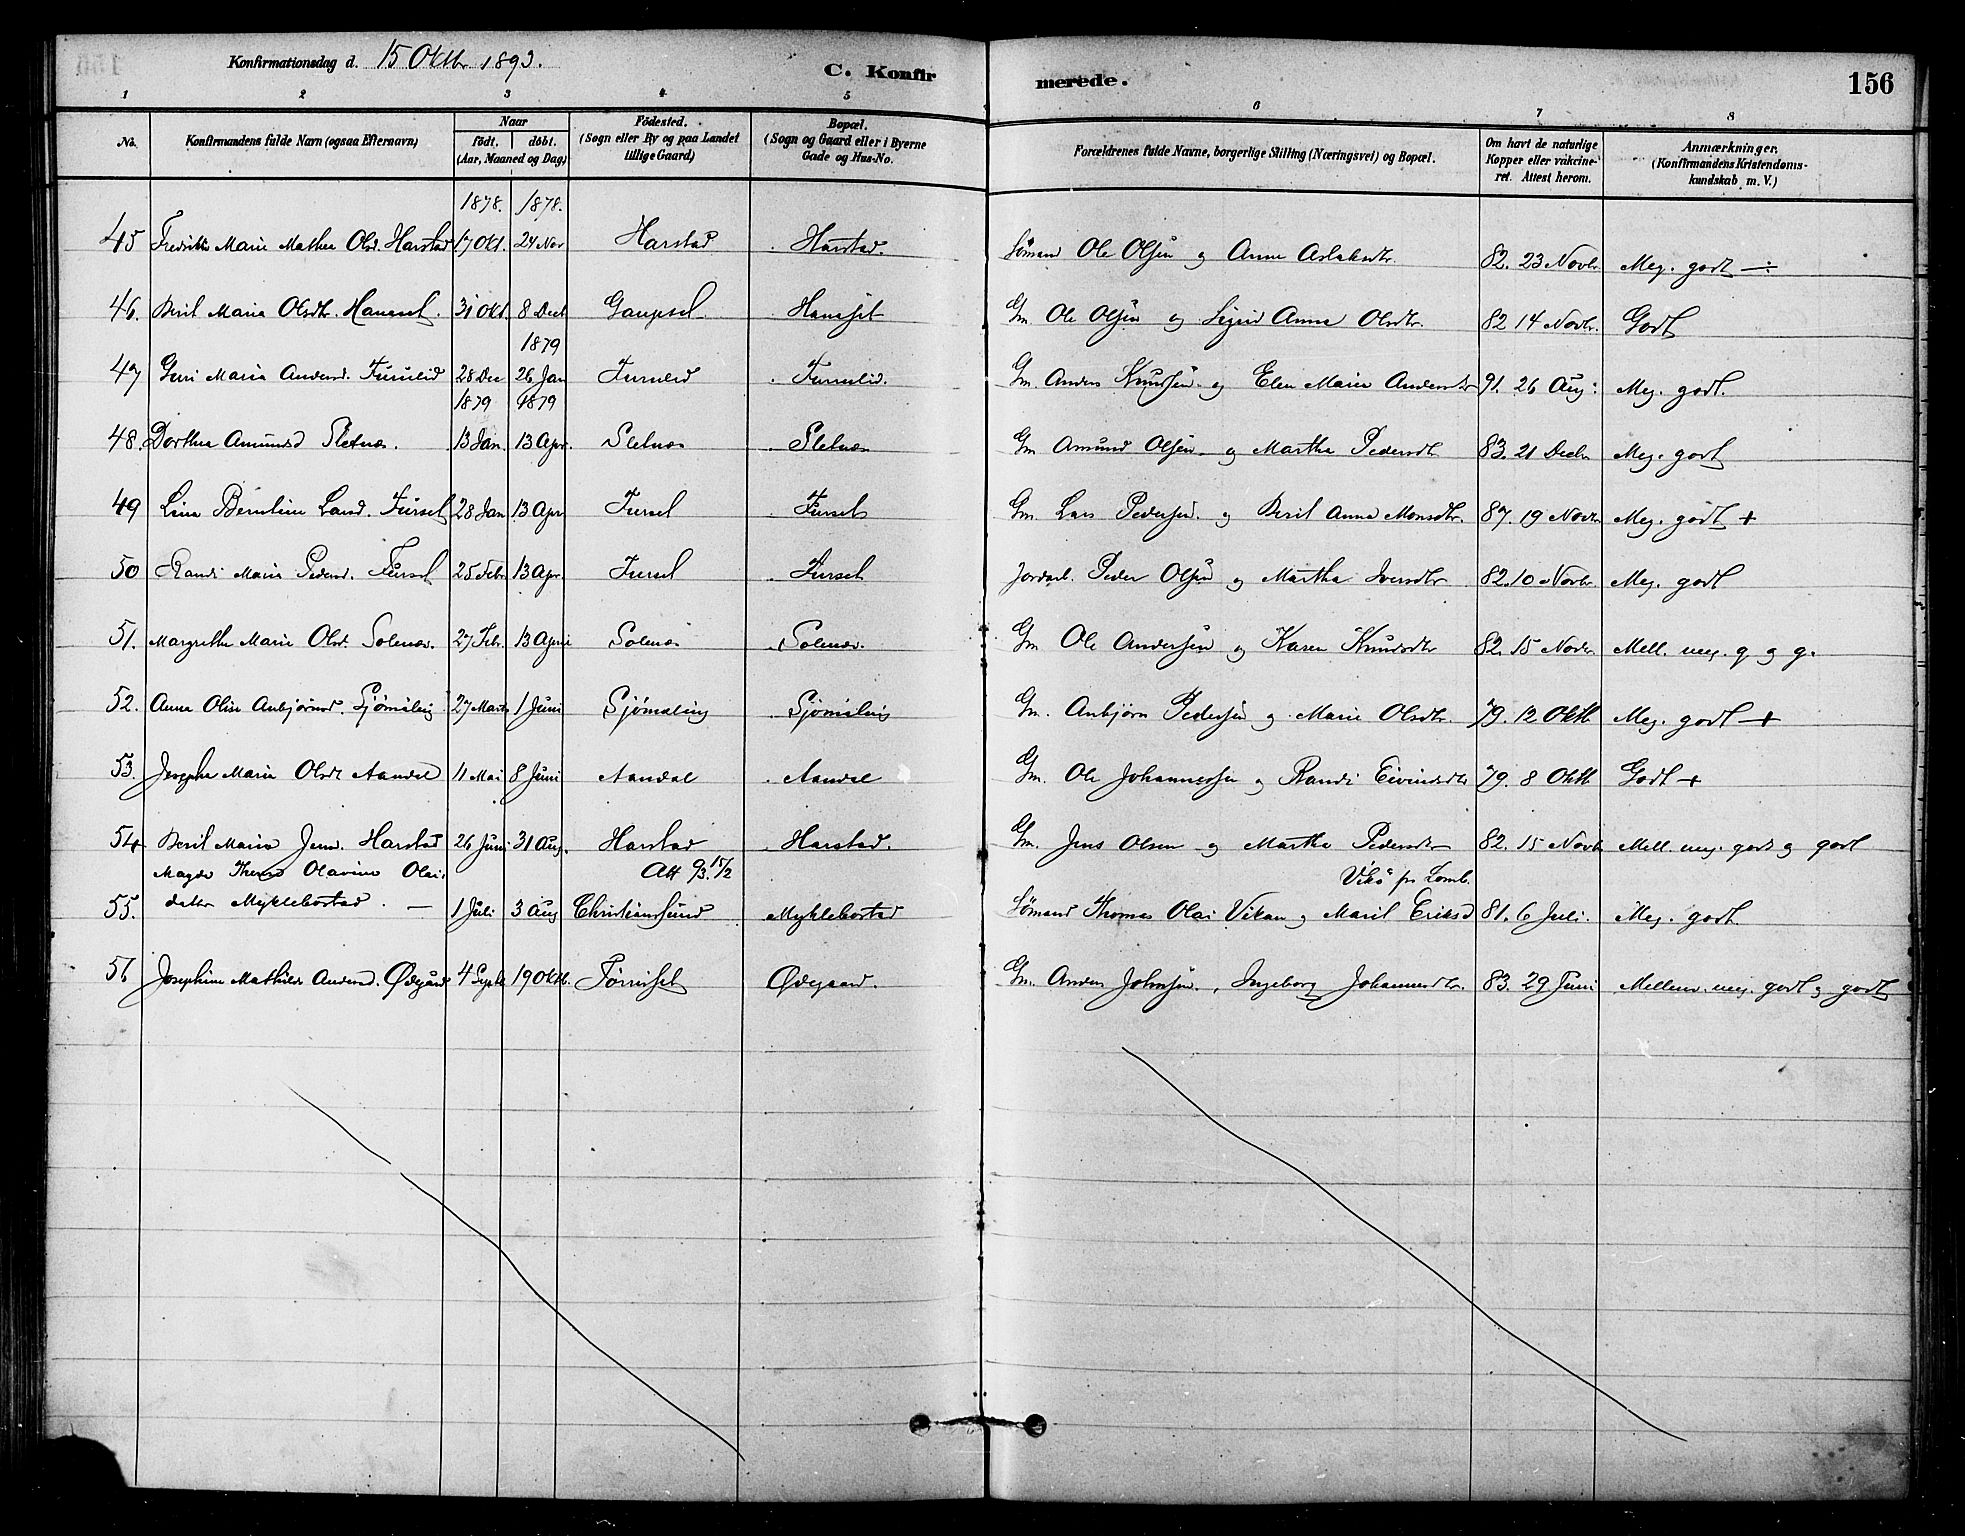 Konfirmationsdag d. 15 Oktbr. 1893.
C. Konfir
merede.
156
1 2 3 4 5 6 7 8
No. Konfirmandens fulde Navn (ogsaa Efternavn) Naar födt. döbt. (Aar, Maaned og Dag) Födested. (Sogn eller By og paa Landet tillige Gaard) Bopæl. (Sogn og Gaard eller i Byerne Gade og Hus-No. Forældrenes fulde Navne, borgerlige Stilling (Næringsvei) og Bopæl. Om havt de naturlige Kopper eller vakcineret. Attest herom. Anmærkninger. (Konfirmandens Kristendomskundskab m. V.)
1878. 1878.
45 Fredrikke Marie Mathea Olsd. Harstad 17 Okt. 24 Nov Harstad Harstad. Sömand Ole Olsen og Anne Aslaksdtr 82. 23 Novbr Meg. godt ÷
46. Beril Maria Olsdtr. Hanaset. 31 Okt. 8 Dec Gaupset Hanaset Gm. Ole Olsen og Sigrid Anna Olsdtr. 82 14 Novbr. Godt
1879
47 Guri Maria Andersd. Furulid 28 Dec 26 Jan Furulid Furulid. Gm. Anders Knutsen og Elen Marie Andersdtr 91. 26 Aug: Meg. godt.
1879 1879
48. Dorthea Amundsd Sletnæs. 13 Jan. 13 Apr. Sletnæs Sletnæs Gm Amund Olsen og Martha Pedersdtr 83. 21 Decbr Meg. godt
49 Line Berntine Larsd. Furset 28 Jan 13 Apr Furset Furset Gm. Lars Pedersen og Beril Anna Monsdtr. 87. 19 Novbr Meg. godt +
50 Randi Maria Pedersd. Furset 25 Febr 13 Apr. Furset Furset Jordarb. Peder Olsen og Martha Iversdtr 82. 10 Novbr Meg. godt
51. Margrethe Marie Olsd. Solenæs. 27 Febr. 13 April Solenæs Solenæs. Gm Ole Andersen og Karen Knudsdtr 82. 15 Novbr. Mell. meg. g og g.
52. Anna Olise Anbjørnsd. Sjømæling 27 Marts 1 Juni Sjømæling Sjømæling Gm. Anbjørn Pedersen og Marie Olsdtr. 79. 12 Oktb Meg. godt +
53. Josepha Maria Olsdt Aandal 11 Mai 8 Juni Aandal Aandal Gm. Ole Johannessen og Randi Eivindsdtr 79. 8 Oktb Godt +
54 Beril Maria Jensd. Harstad 26 Juni 31 Aug. Harstad Harstad. Gm. Jens Olsen og Martha Pedersdtr 82. 15 Novb Mell. meg. godt og godt
Magda Olavine Olai. Att 93. 15/2
55. datter Myklebostad. — 1 Juli 3 Aug Christianssund Myklebostad Sömand Thomas Olai Vikan og Maril Eriksd 81. 6 Juli. Meg. godt
56 Josephine Mathilde Andersd. Ødegård 4 Septb 19 Oktb. Tørrisset Ødegaard. Gm. Anders Johnsen, Ingeborg Johannesdtr. 83. 29 Juni Mellem meg. godt og godt